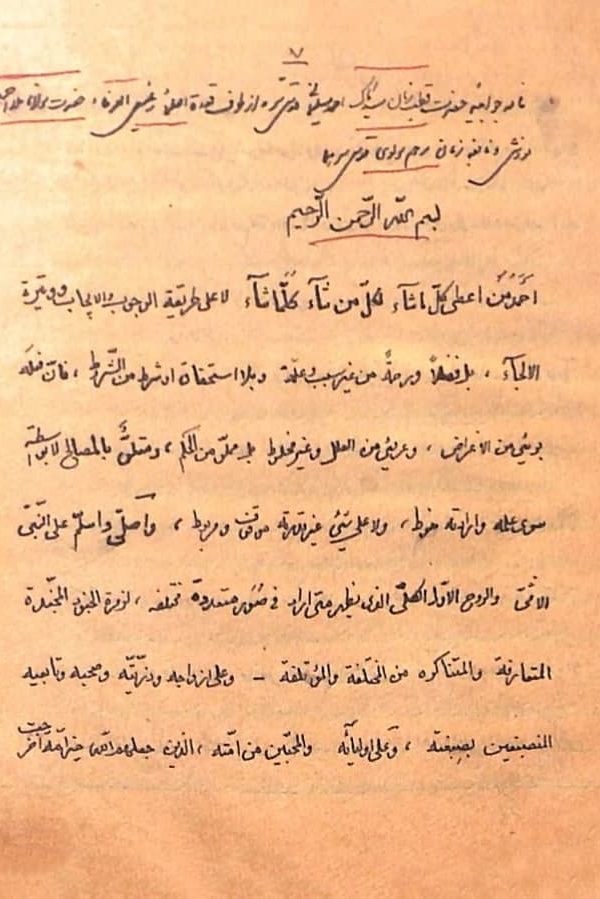 ٧
نامه جوابیه حضرت قطب زمان سید پاک احمد سلیمانی قدس سره از طرف قدوة العلماء رئیس العرفاء، حضرت مولانا ملا احمد
نودشی و نابغه زمان مرحوم مولوی قدس سرهما
بسم الله الرحمن الرحیم
أحمد من اعطى كلّ ما شآء لكلّ من شآء كلّما شآء لا على طريقة الوجوب والايجاب ووتيرة
الالجآء ، بل فضلاً ورحمةً من غير سبب وعلّة وبلا استحقاق او شرط من الشّروط ، فان فعله
بريئ من الاغراض ، وعريّ من العلل وغير مخلوط بل مملوّ من الحكم ، ومتلقّ بالمصالح لا بواسطة
سوى علمه وارادته منوط ، ولا على شئ غير قدرته موقوف ومربوط ، وأصلّى وأسلّم على النّبى
الامّىّ والروح الاوّل الكلّىّ الذى يظهر متى اراد فى صُوَر متعددة مختلفه ، لزمرة الجنود المجنّدة
المتعارفة والمتناكره من المختلفة والمؤتلفة – وعلى ازواجه وذرّيّته وصحبه وتابعيه
المنصبغين بصبغته ، وعلى اوليآئه والمحبّين من امّته ، الذين جعلهم الله خير امّة اخرجت